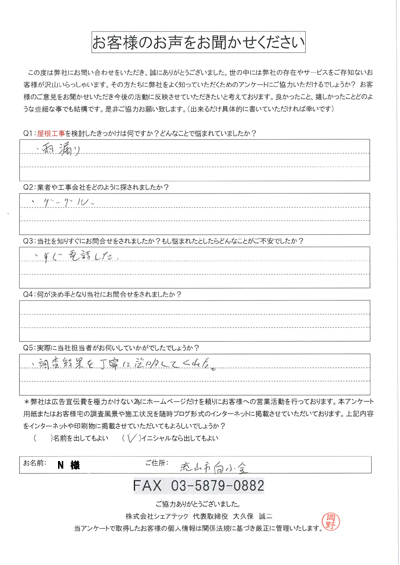 お客様のお声をお聞かせください
この度は弊社にお問い合わせをいただき、誠にありがとうございます。世の中には弊社の存在やサービスをご存知ないお
客様が沢山いらっしゃいます。その方たちに弊社をよく知っていただくためのアンケートにご協力いただけるでしょうか？ お客
様のご意見をお聞かせいただき今後の活動に反映させていただきたいと考えております。良かったこと、嬉しかったことどのよ
うな些細な事でも結構です。是非ご協力お願い致します。(出来るだけ具体的に書いていただければ幸いです)
Q1:屋根工事を検討したきっかけは何ですか？どんなことで悩まれていましたか？
・雨漏り
Q2:業者や工事会社をどのように探されましたか？
・グーグル
Q3:当社を知りすぐにお問合せをされましたか？もし悩まれたとしたらどんなことがご不安でしたか？
・すぐ電話した.
Q4:何が決め手となり当社にお問合せをされましたか？
Q5:実際に当社担当者がお伺いしていかがでしたでしょうか？
・調査結果を丁寧に説明してくれた。
＊弊社は広告宣伝費を極力かけない為にホームページだけを頼りにお客様への営業活動を行っております。本アンケート
用紙またはお客様宅の調査風景や施工状況を随時ブログ形式のインターネットに掲載させていただいております。上記内容
をインターネットや印刷物に掲載させていただいてもよろしいでしょうか？
(　)名前を出してもよい　(✓)イニシャルなら出してもよい
お名前:　N 様　ご住所:　流山市向小金
FAX 03-5879-0882
ご協力ありがとうございました。
株式会社シェアテック 代表取締役 大久保 誠二
岡野
当アンケートで取得したお客様の個人情報は関係法規に基づき厳正に管理いたします。